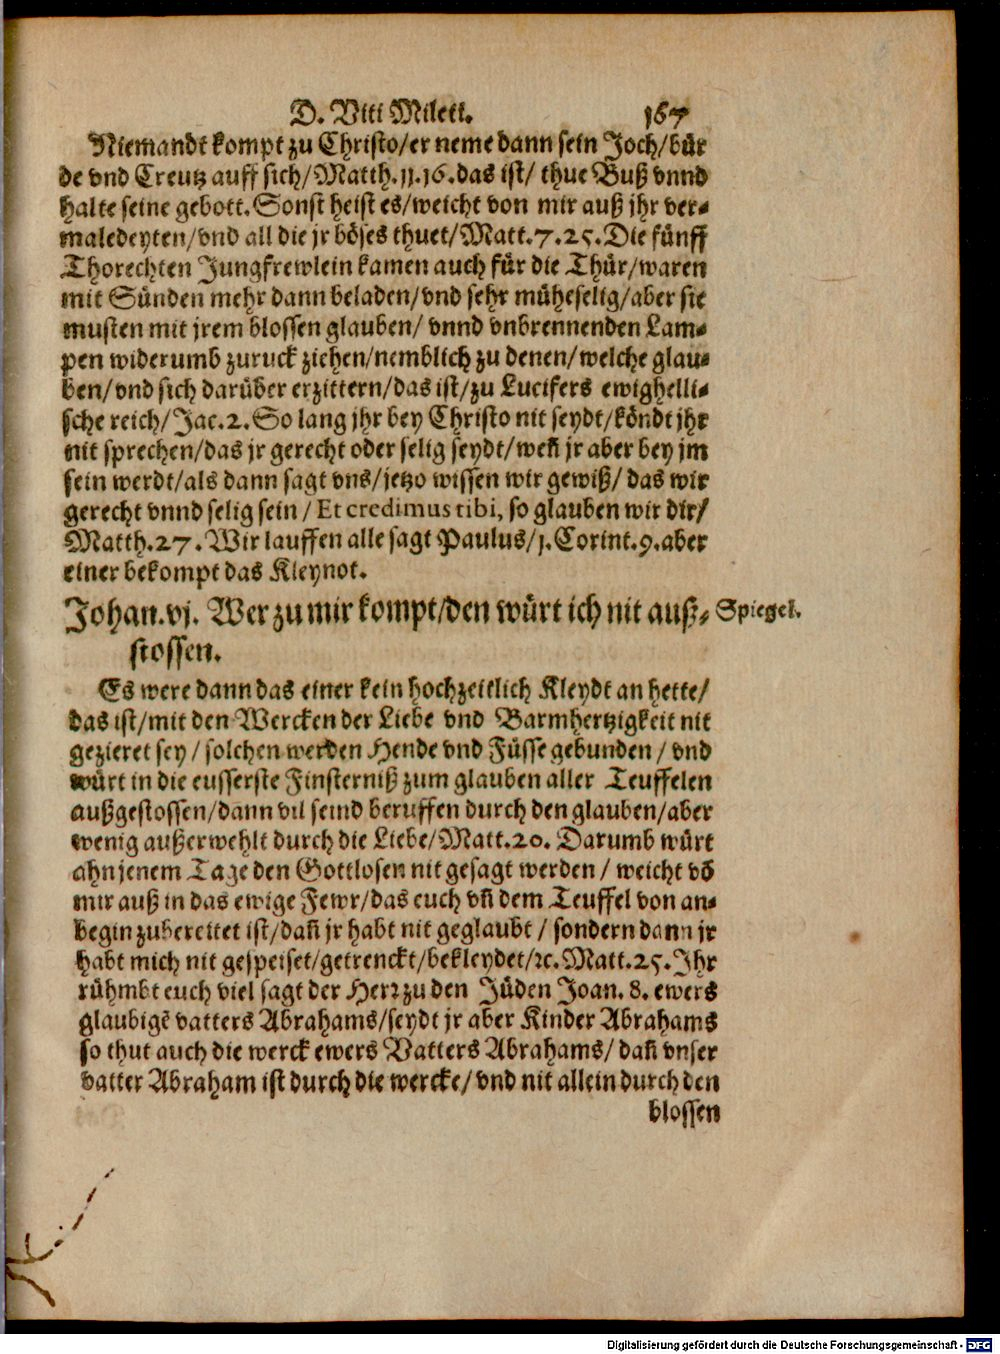 D. Viti Mileti. 167
Niemandt kompt zu Christo/er neme dann sein Joch/bür
de vnd Creutz auff sich/Matth.11.16.das ist/ thue Buß vnnd
halte seine gebott. Sonst heist es/weicht von mir auß jhr ver-
maledeyten/vnd all die jr böses thuet/Matt.7.25. Die fünff
Thorechten Jungfrewlein kamen auch für die Thür/waren
mit Sünden mehr dann beladen/vnd sehr müheselig/aber sie
musten mit jrem blossen glauben/ vnnd vnbrennenden Lam-
pen widerumb zuruck ziehen/nemblich zu denen/welche glau-
ben/vnd sich darüber erzittern/das ist/zu Lucifers ewighelli-
sche reich/Jac.2. So lang jhr bey Christo nit seydt/köndt jhr
nit sprechen/das jr gerecht oder selig seydt/weñ jr aber bey jm
sein werdt/als dann sagt vns/jetzo wissen wir gewiß/ das wir
gerecht vnnd selig sein / Et credimus tibi, so glauben wir dir/
Matth.27. Wir lauffen alle sagt Paulus/1. Corint.9.aber
einer bekompt das Kleynot.
Johan.vj. Wer zu mir kompt/den würt ich nit auß- Spiegel.
stossen.
Es were dann das einer kein hochzeitlich Kleydt an hette/
das ist/mit den Wercken der Liebe vnd Barmhertzigkeit nit
gezieret sey / solchen werden Hende vnd Füsse gebunden / vnd
würt in die eusserste Finsterniß zum glauben aller Teuffelen
außgestossen/dann vil seind beruffen durch den glauben/aber
wenig außerwehlt durch die Liebe/Matt.20. Darumb würt
ahn jenem Tage den Gottlosen nit gesagt werden / weicht võ
mir auß in das ewige Fewr/das euch vñ dem Teuffel von an-
begin zubereitet ist/dañ jr habt nit geglaubt / sondern dann jr
habt mich nit gespeiset/getrenckt/bekleydet/ꝛc. Matt.25. Ihr
rühmbt euch viel sagt der Herr zu den Jüden Joan. 8. ewers
glaubigẽ vatters Abrahams/seydt jr aber Kinder Abrahams
so thut auch die werck ewers Vatters Abrahams/ dañ vnser
vatter Abraham ist durch die wercke/ vnd nit allein durch den
blossen
Digitalisierung gefördert durch die Deutsche Forschungsgemeinschaft - DFG